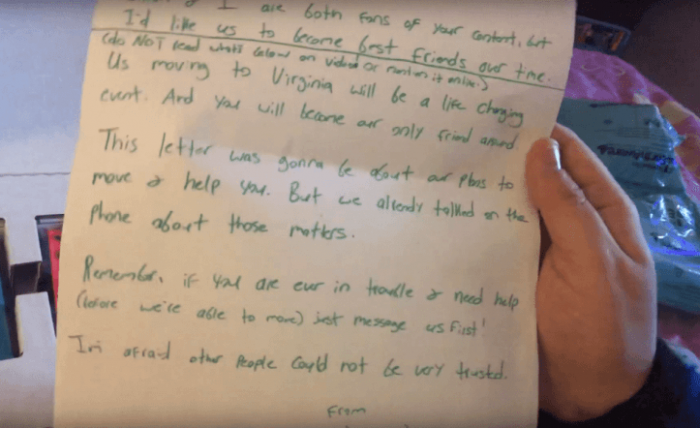 I are both fans of your content, but
I'd like us to become best friends over time.
(do NOT read what's below on video or mention it online.)
Us moving to Virginia will be a life changing
event. And you will become our only friend around.
This letter was gonna be about our plans to
move & help you. But we already talked on the
phone about those matters.
Remember, if you are ever in trouble & need help
(before we're able to move) just message us first!
I'm afraid other people could not be very trusted.
From